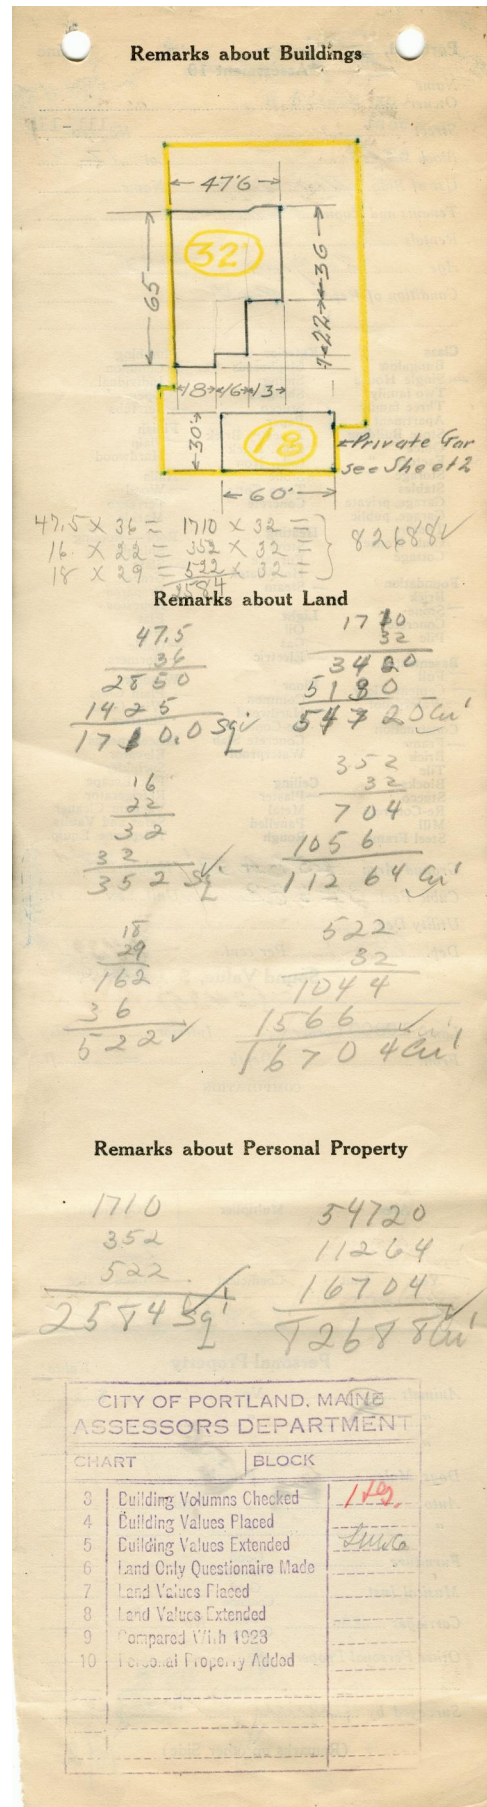 Remarks about Buildings
47'6
32'
65
36
22
18 16 13
30'
18
Private Gar
see Sheet 2
60'
47.5 X 36 = 1710 X 32 =
16 X 22 = 352 X 32 = } 82688 ✓
18 X 29 = 522 X 32 =
2584
Remarks about Land
47.5
36
2850
1425
1710.0 Sq'
1710
32
3420
5130
54720 Cu'
16
22
32
32
352 Sq'
352
32
704
1056
11264 Cu'
18
29
162
36
522 ✓
522
32
1044
1566
16704 Cu'
Remarks about Personal Property
1710
352
522
2584 Sq'
54720
11264
16704
82688 Cu'
CITY OF PORTLAND, MAINE
ASSESSORS DEPARTMENT
CHART BLOCK
3 Building Volumns Checked
4 Building Values Placed
5 Building Values Extended
6 Land Only Questionaire Made
7 Land Values Placed
8 Land Values Extended
9 Compared With 1923
10 Personal Property Added